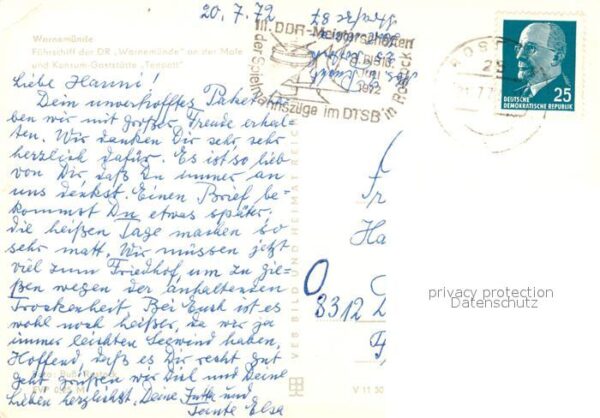 20.7.72
Warnemünde
Fährschiff der DR „Warnemünde" an der Mole
und Konsum Gaststätte „Teepott"
Liebe Hanni!
Dein unverhofftes Paket ha-
ben wir mit großer Freude erhal-
ten. Wir danken Dir sehr, sehr
herzlich dafür. Es ist so lieb
von Dir, daß Du immer an
uns denkst. Einen Brief be-
kommst Du etwas später,
die heißen Tage machen so
sehr matt. Wir müssen jetzt
viel zum Friedhof, um zu gie-
ßen wegen der anhaltenden
Trockenheit. Bei Euch ist es
wohl noch heißer, da wir ja
immer leichten Seewind haben.
Hoffend, daß es Dir recht gut
geht grüßen wir Dich und Deine
Lieben herzlichst. Deine Jutta und
Tante Elsa
VEB BILD UND HEIMAT REI
V 11 50
III. DDR-Meisterschaften
der Spielmannszüge im DTSB in Rostock
1972
ROST
25
DEUTSCHE
DEMOKRATISCHE REPUBLIK
25
Fr
Ha
8312
privacy protection
Datenschutz